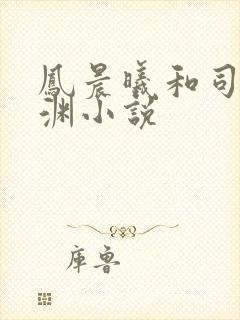 鳳晨曦和司
渊小説
库鲁